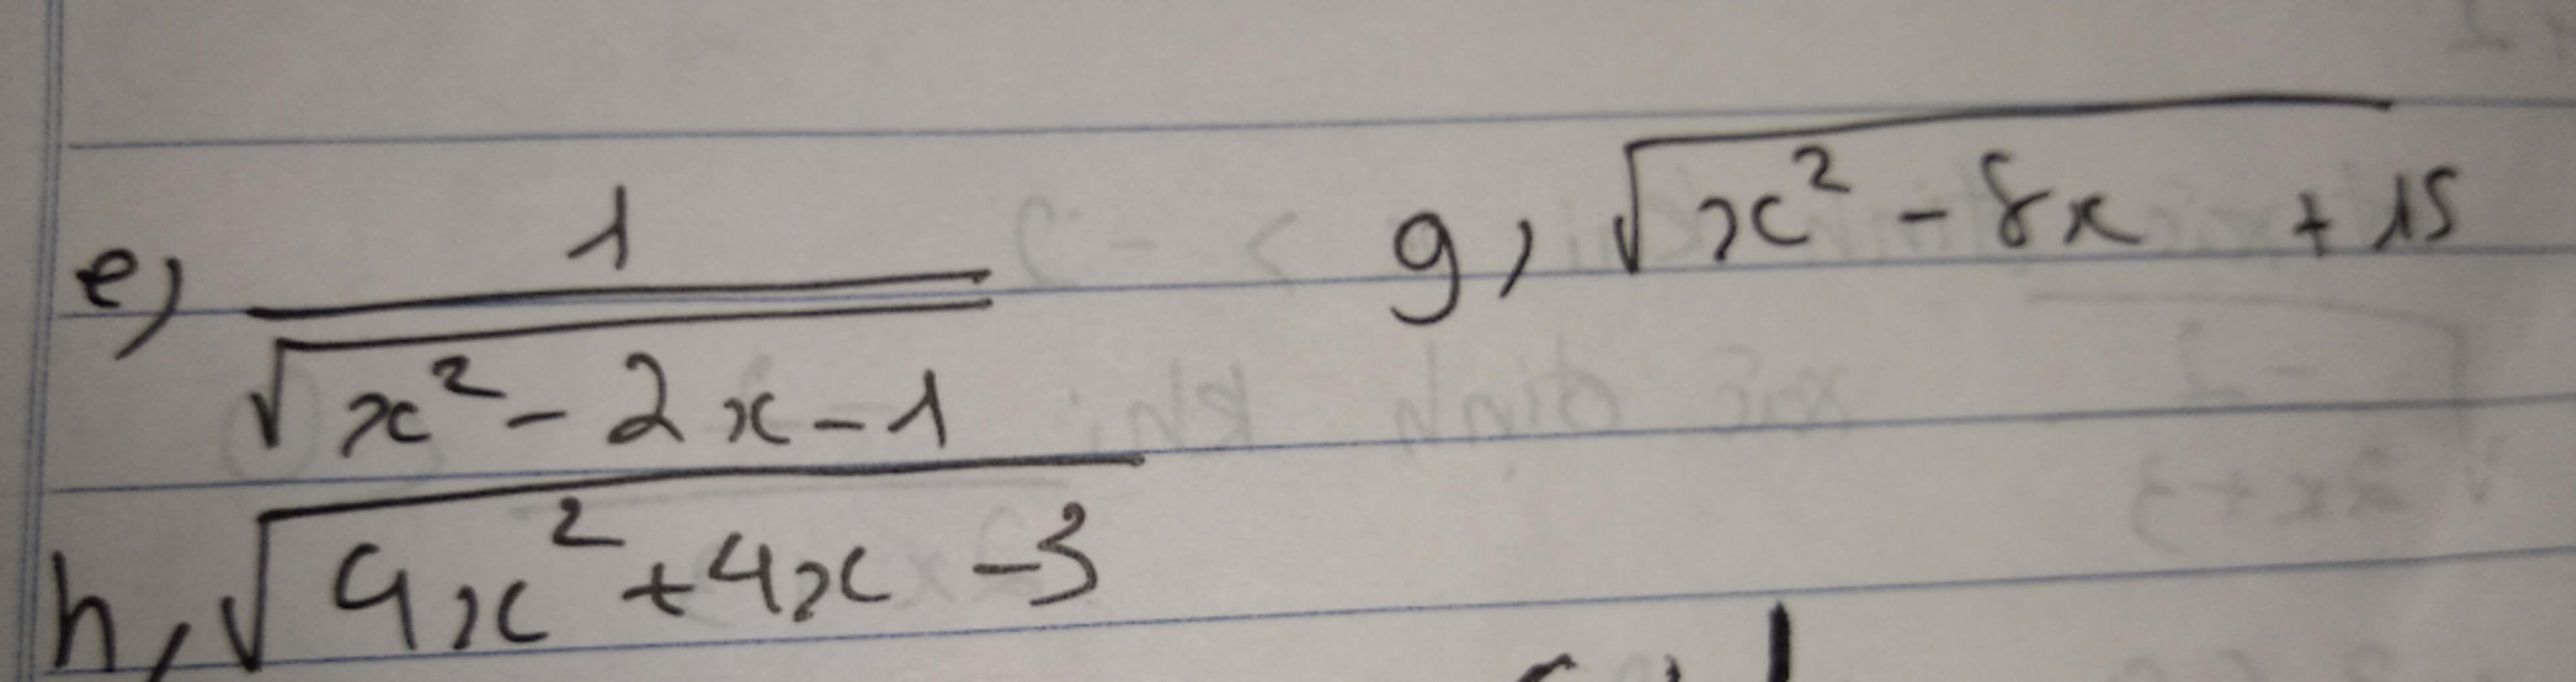 e) 1/√(x² - 2x - 1)
g) √(x² - 8x + 15)
h, √(4x² + 4x - 3)